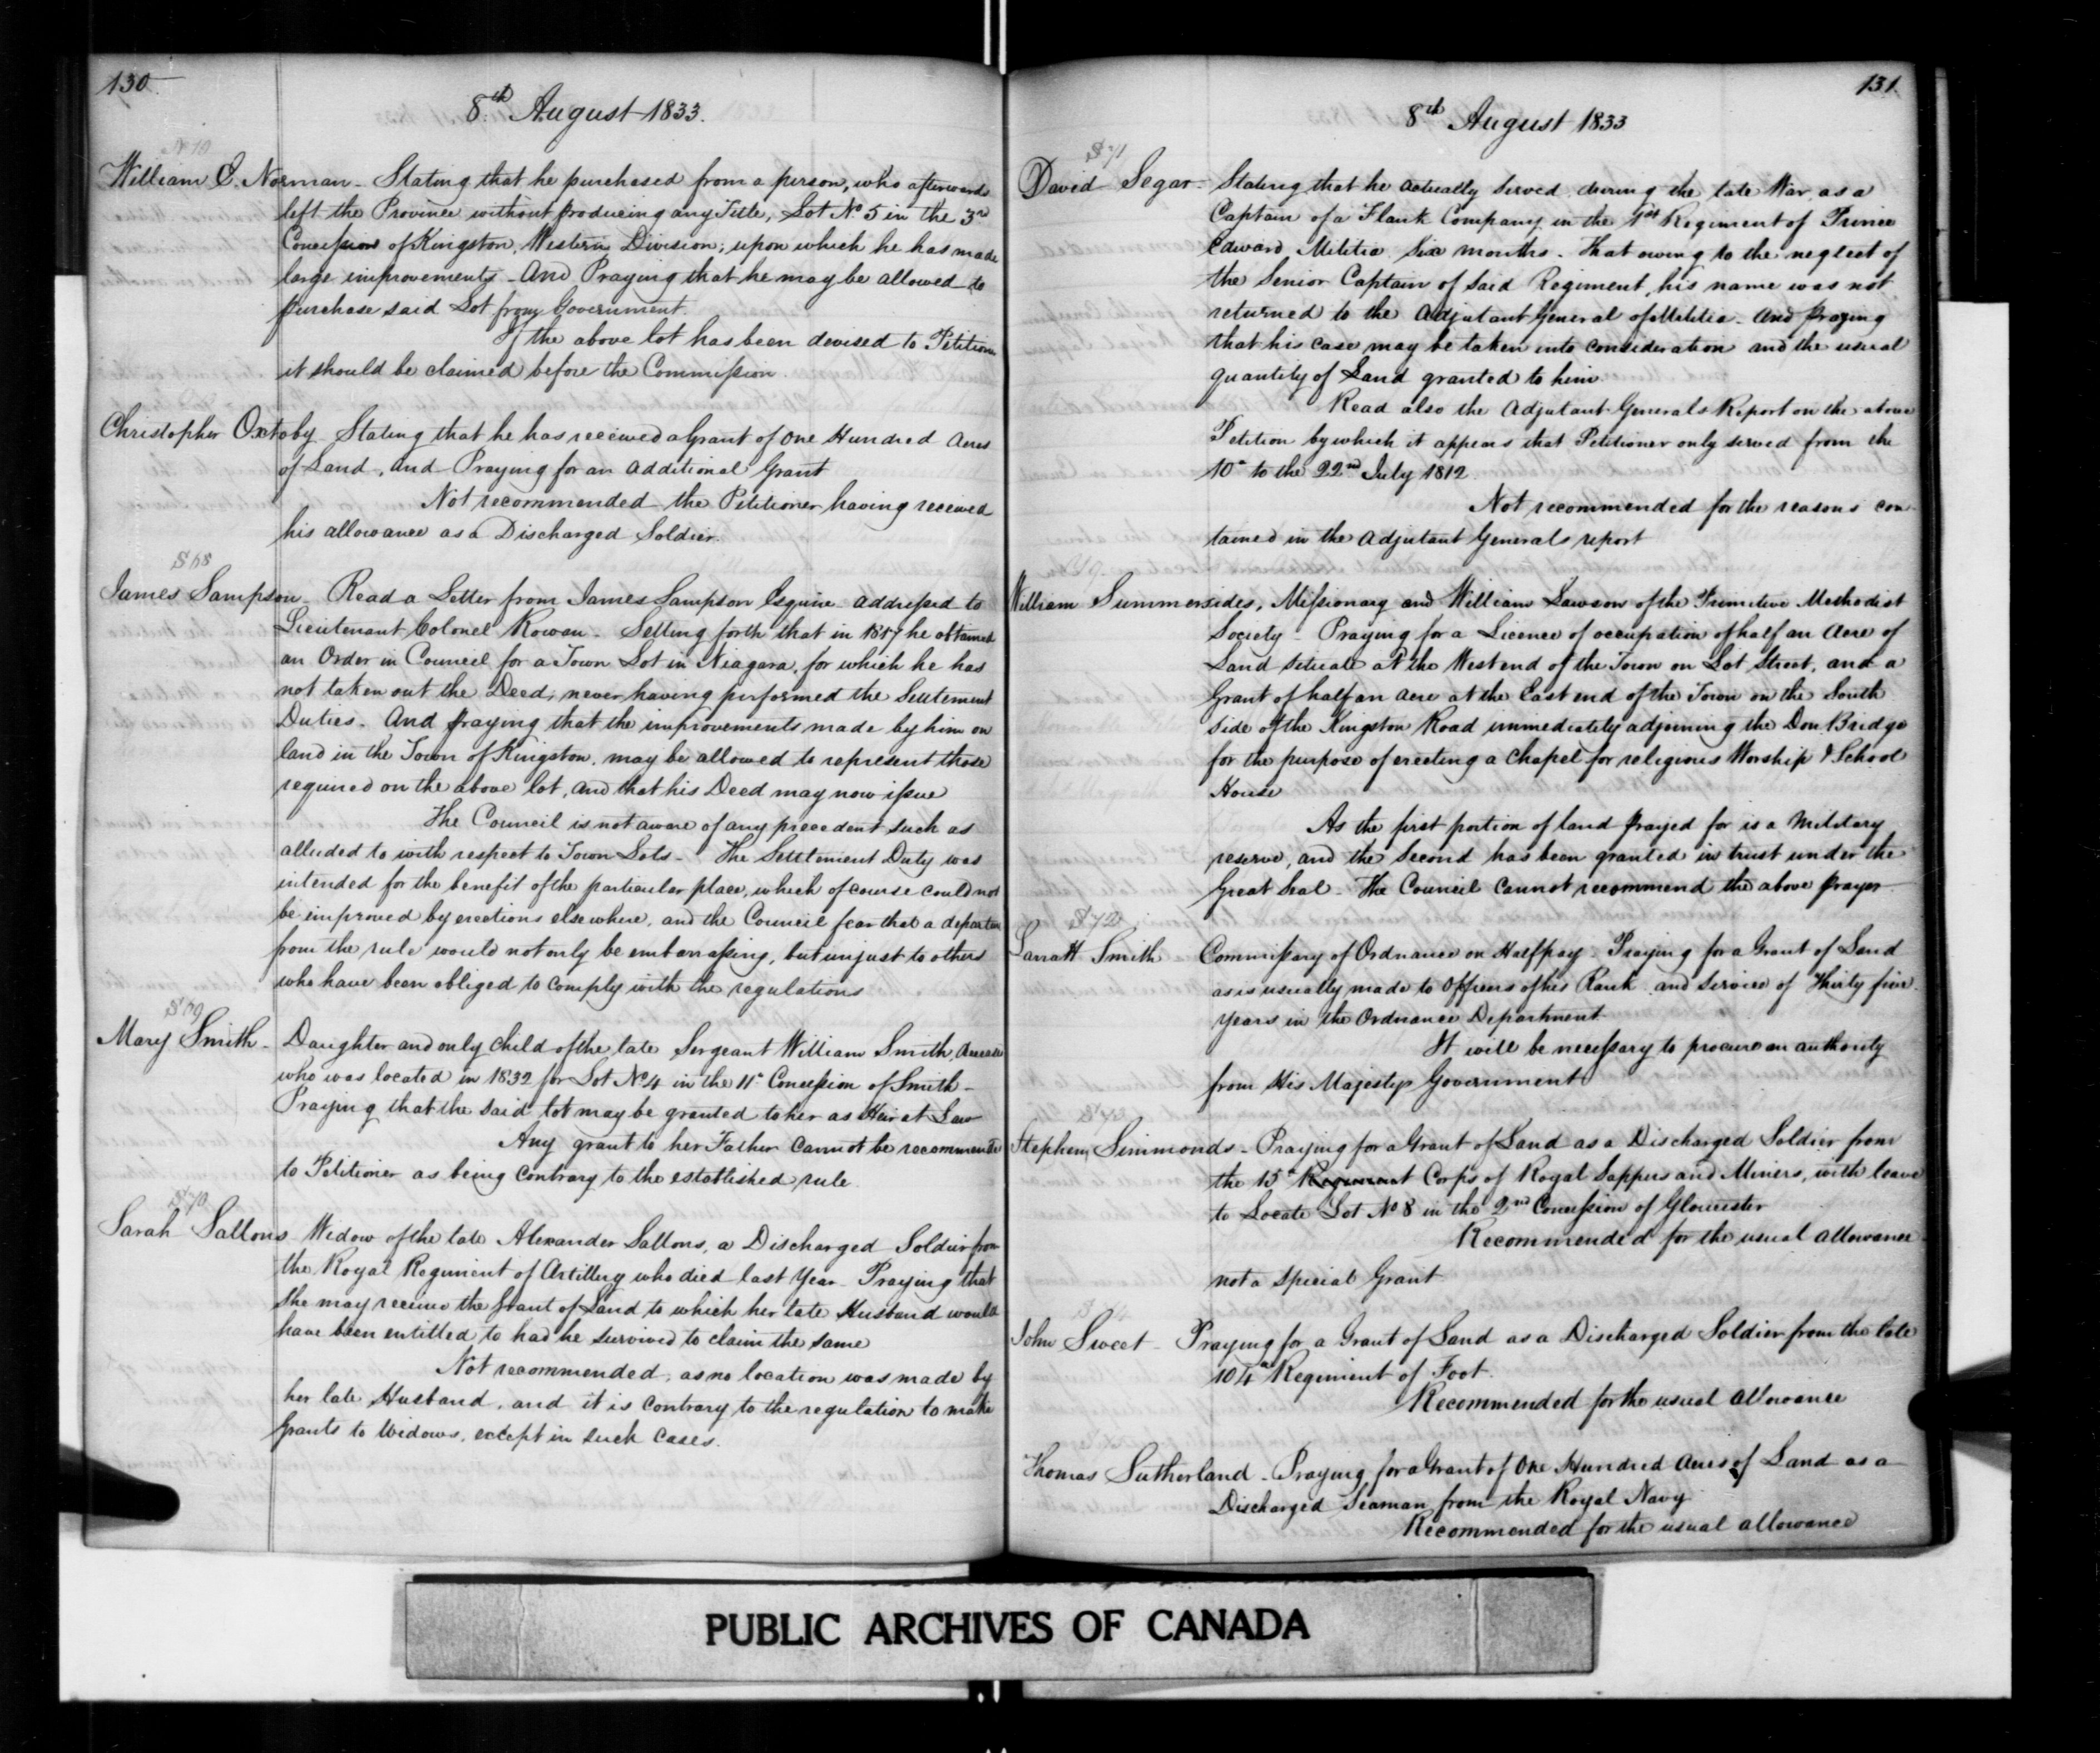 130
8th August 1833.
N 10
William C. Norman - Stating that he purchased from a person, who afterwards
left the Province without producing any Title, Lot No 5 in the 3rd
Concession of Kingston, Western Division; upon which he has made
large improvements - And Praying that he may be allowed to
purchase said Lot from Government.
If the above lot has been devised to Petitioner
it should be claimed before the Commission.
Christopher Oxtoby - Stating that he has received a Grant of One Hundred Acres
of Land, and Praying for an additional Grant
Not recommended the Petitioner having received
his allowance as a Discharged Soldier.
S 68
James Sampson - Read a Letter from James Sampson Esquire addressed to
Lieutenant Colonel Rowan - Setting forth that in 1817 he obtained
an Order in Council for a Town Lot in Niagara, for which he has
not taken out the Deed, never having performed the Settlement
Duties. And praying that the improvements made by him on
land in the Town of Kingston, may be allowed to represent those
required on the above lot, and that his Deed may now issue
The Council is not aware of any precedent such as
alluded to with respect to Town Lots - The Settlement Duty was
intended for the benefit of the particular place, which of course could not
be improved by erections elsewhere, and the Council fear that a departure
from the rule would not only be embarrassing, but unjust to others
who have been obliged to comply with the regulations
S 69
Mary Smith - Daughter and only child of the late Sergeant William Smith,
who was located in 1832 for Lot No 4 in the 11th Concession of Smith -
Praying that the said lot may be granted to her as Heir at Law
Any grant to her Father cannot be recommended
to Petitioner as being contrary to the established rule.
S 70
Sarah Sallons - Widow of the late Alexander Sallons, a Discharged Soldier from
the Royal Regiment of Artillery who died last Year - Praying that
she may receive the Grant of Land to which her late Husband would
have been entitled to had he survived to claim the same
Not recommended, as no location was made by
her late Husband, and it is contrary to the regulation to make
Grants to Widows, except in such cases.
131
8th August 1833
S 71
David Segar - Stating that he actually served during the late War, as a
Captain of a Flank Company in the 1st Regiment of Prince
Edward Militia Six months. That owing to the neglect of
the Senior Captain of said Regiment, his name was not
returned to the Adjutant General of Militia - and praying
that his case may be taken into consideration and the usual
quantity of Land granted to him
Read also the Adjutant Generals Report on the above
Petition by which it appears that Petitioner only served from the
10th to the 22nd July 1812.
Not recommended for the reasons con-
tained in the Adjutant Generals report
William Summersides, Missionary and William Lawson of the Primitive Methodist
Society - Praying for a Licence of occupation of half an Acre of
Land situate at the West end of the Town on Lot Street, and a
Grant of half an acre at the East end of the Town on the South
side of the Kingston Road immediately adjoining the Don Bridge
for the purpose of erecting a Chapel for religious Worship & School
House
As the first portion of land prayed for is a Military
reserve, and the second has been granted in trust under the
Great Seal - The Council cannot recommend the above prayer.
S 72
Larratt Smith Commissary of Ordnance on Halfpay - Praying for a Grant of Land
as is usually made to Officers of his Rank and service of Thirty five
years in the Ordnance Department
It will be necessary to procure an authority
from His Majestys Government
S 73
Stephen Simmonds - Praying for a Grant of Land as a Discharged Soldier from
the 15th Regiment Corps of Royal Sappers and Miners, with leave
to Locate Lot No 8 in the 2nd Concession of Gloucester
Recommended for the usual allowance
not a special Grant
S 74
John Sweet - Praying for a Grant of Land as a Discharged Soldier from the late
104th Regiment of Foot.
Recommended for the usual allowance
Thomas Sutherland - Praying for a Grant of One Hundred Acres of Land as a
Discharged Seaman from the Royal Navy
Recommended for the usual allowance
PUBLIC ARCHIVES OF CANADA